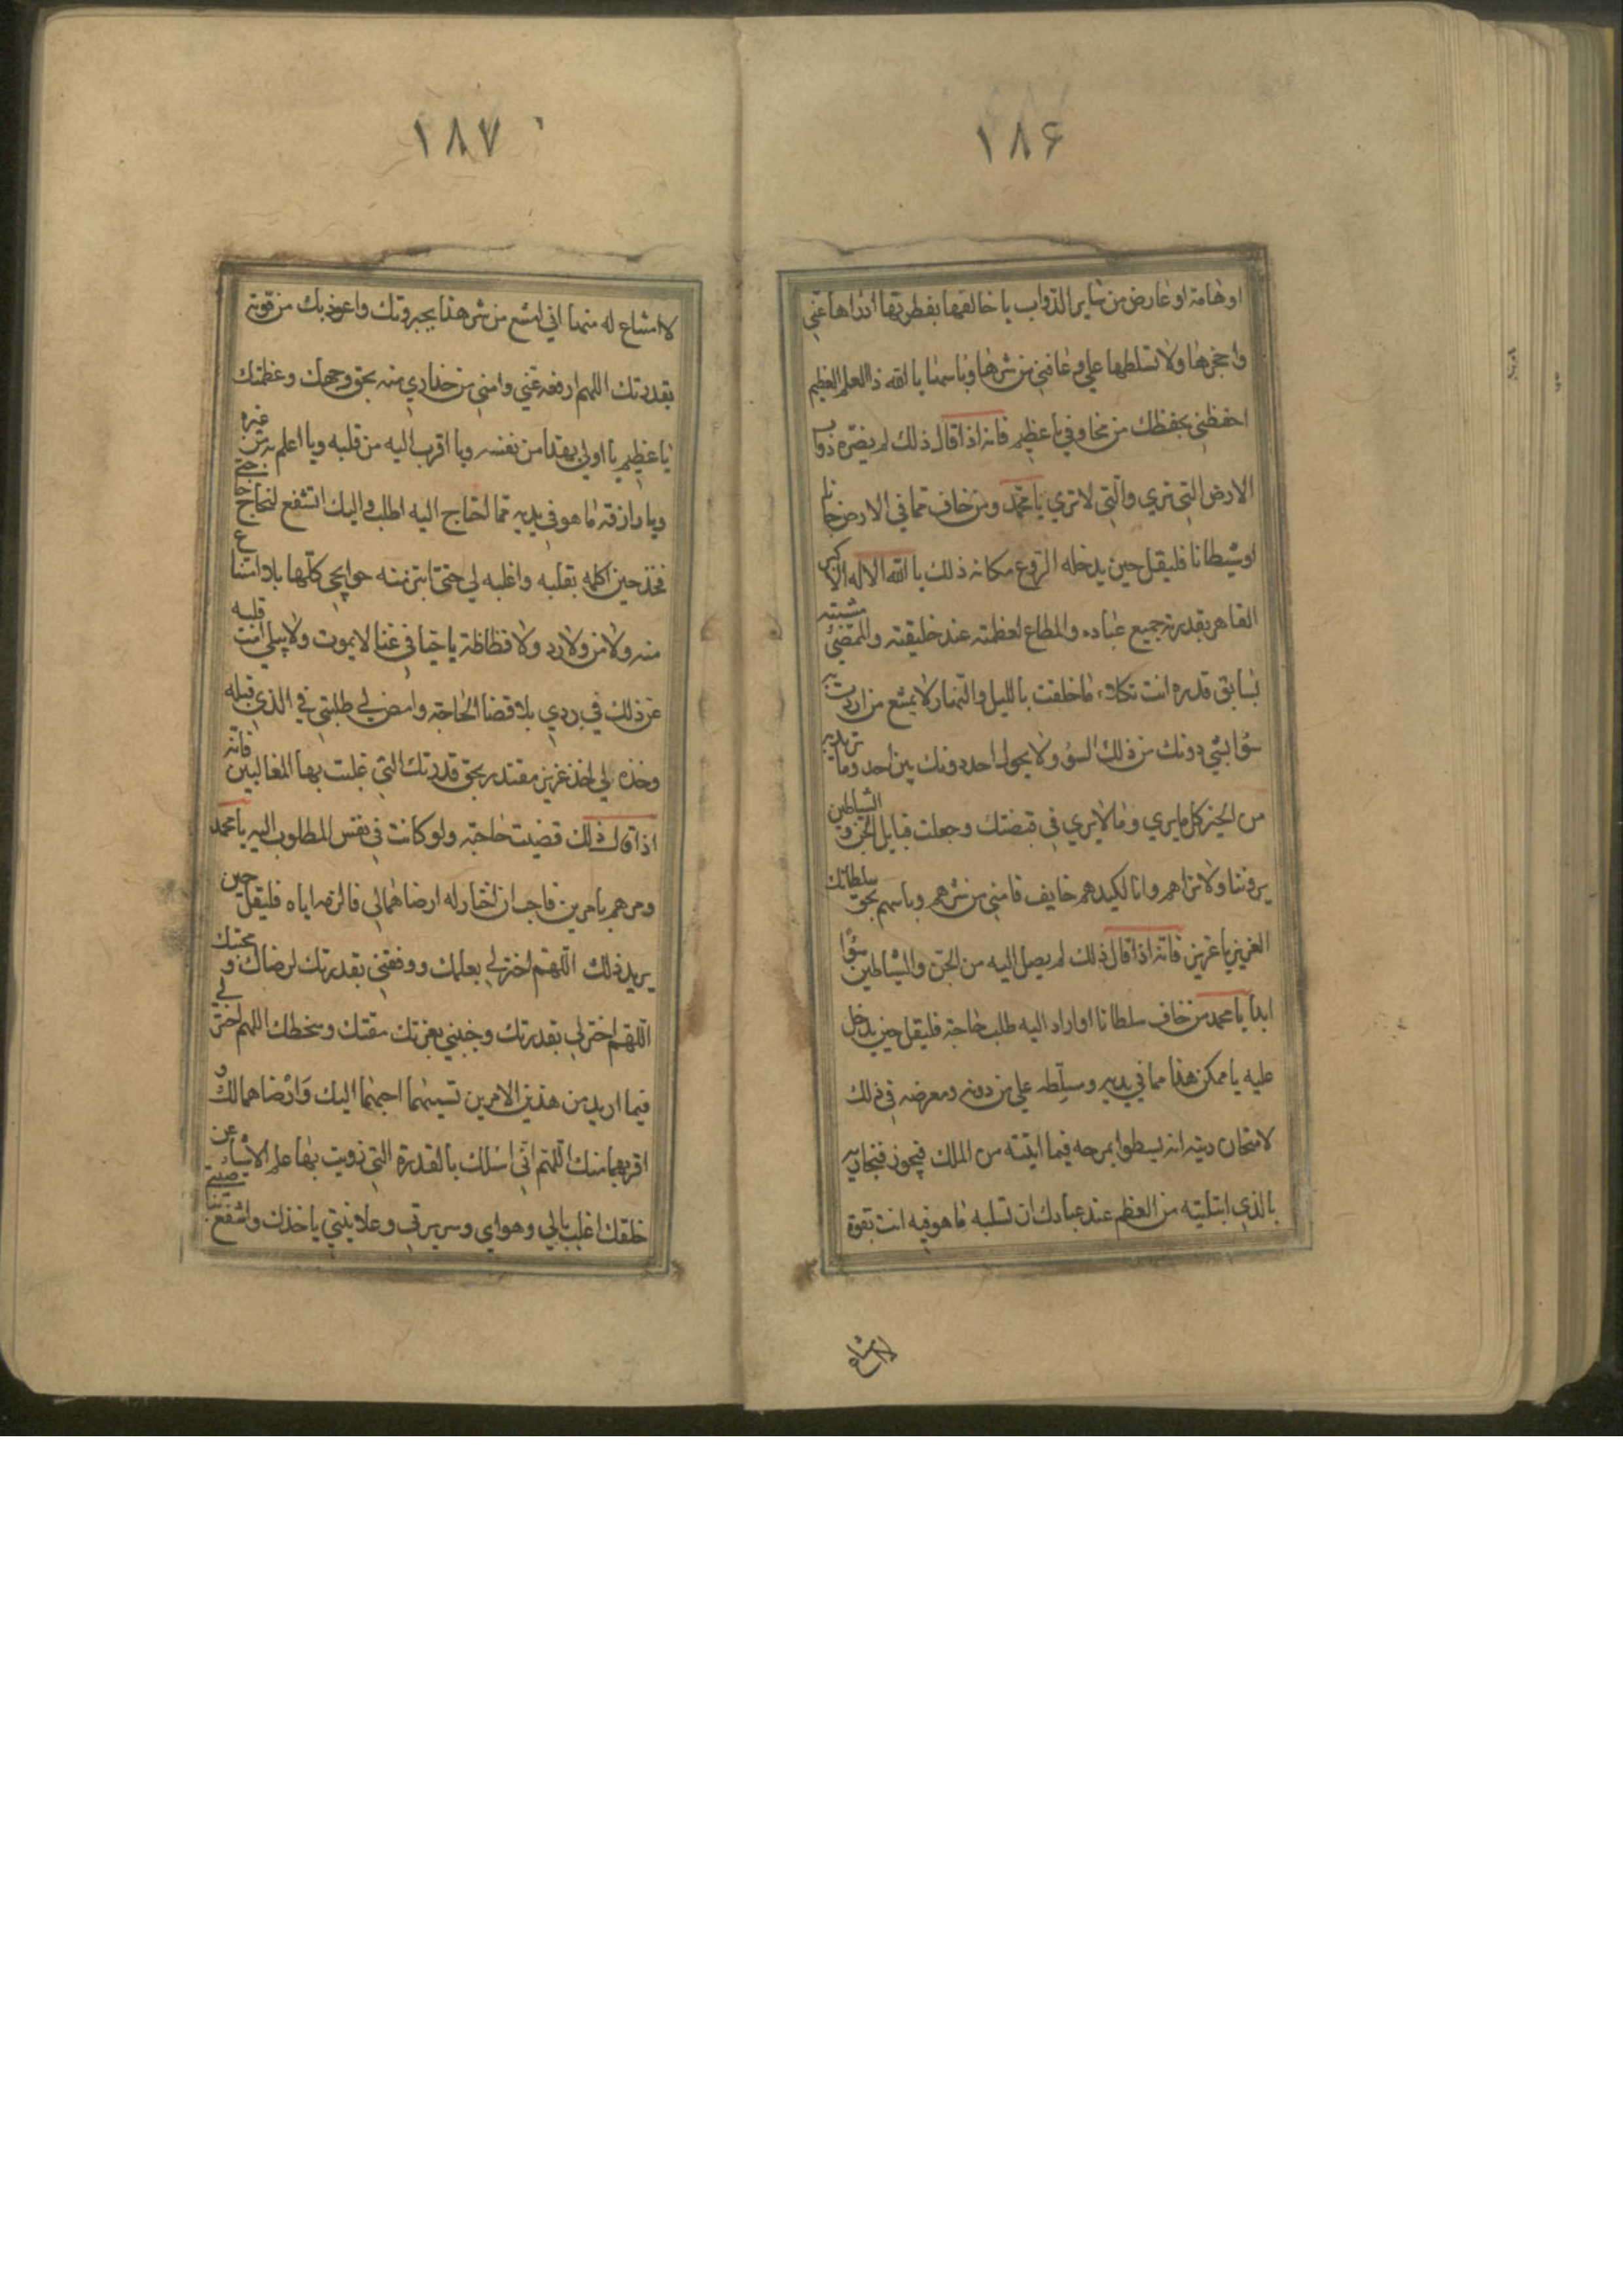 ١٨۶
او هامة او عارض من ساير الدواب يا خالقها بفطرتها ادراها عني
واحجزها ولا تسلطها علي وعافني من شرها وباسها يا الله ذا العلم العظيم
احفظني بحفظك من مخاوفي يا عظيم فانه اذا قال ذلك لم يضره دواب
الارض التي تري والتي لا تري يا محمد ومن خاف مما في الارض جانا
او شيطانا فليقل حين يدخله الروع مكانه ذلك يا الله الاله الاكبر
القاهر بقدرته جميع عباده والمطاع لعظمته عند خليقته والممضي مشيته
لسابق قدره انت تكلاء ما خلقت بالليل والنهار لا يمتنع من اردت به
سؤا بشي دونك من ذلك السؤ ولا يحول احد دونك بين احد وما تريد به
من الخير كل ما يري وما لا يري في قبضتك وجعلت قبايل الجن والشياطين
يروننا ولا نراهم وانا لكيدهم خايف فامني من شرهم وباسهم بحق سلطانك
العزيز يا عزيز فانه اذا قال ذلك لم يصل اليه من الجن والشياطين سؤا
ابدا يا محمد من خاف سلطانا او اراد اليه طلب حاجة فليقل حين يدخل
عليه يا ممكن هذا مما في يديه ومسلطه علي من دونه ومعرضه في ذلك
لامتحان دينه انه يسطوا بمرحه فيما اتيته من الملك فيجوز فيتجاربه
بالذي ابتليته من العظم عند عبادك ان تسلبه ما هو فيه انت بقوة
لا امتناع
١٨٧
لا امتناع له منها اني امتنع من شر هذا بجبروتك واعوذ بك من قوته
بقدرتك اللهم ارفعه عني وامني من حذاري منه بحق وجهك وعظمتك
يا عظيم يا اولي بهذا من نفسه ويا اقرب اليه من قلبه ويا اعلم به من غيره
ويا رازقه ما هو في يديه مما احتاج اليه اطلب واليك اتشفع لنجاح حاجتي
فخذ حين اكلمه بقلبه واغلبه لي حتي ابتز منه حوايجي كلها بلا امتناع
منه ولا من ولا رد ولا فظاظة يا حيا في غنا لا يموت ولا يبلي امت قلبه
عن ذلك في ردي بلا قضا الحاجة وامض لي طلبتي في الذي قبله
وخذه لي اخذ عزيز مقتدر بحق قدرتك التي غلبت بها المغالبين فانه
اذا قال ذلك قضيت حاجته ولو كانت في نفس المطلوب اليه يا محمد
ومن هم بامرين فاحب ان اختار له ارضاهما لي فالزمه اياه فليقل حين
يريد ذلك اللهم اختر لي بعلمك ووفقني بقدرتك لرضاك و محبتك
اللهم اختر لي بقدرتك وجنبني بعزتك مقتك وسخطك اللهم اختر لي
فيما اريد من هذين الامرين تسميهما احبهما اليك وارضاهما لك و
اقربهما منك اللهم اني اسئلك بالقدرة التي زويت بها علم الاشيا عن
خلقك اغلب بالي وهواي وسريرتي وعلانيتي ياخذك واشفع بناصيتي